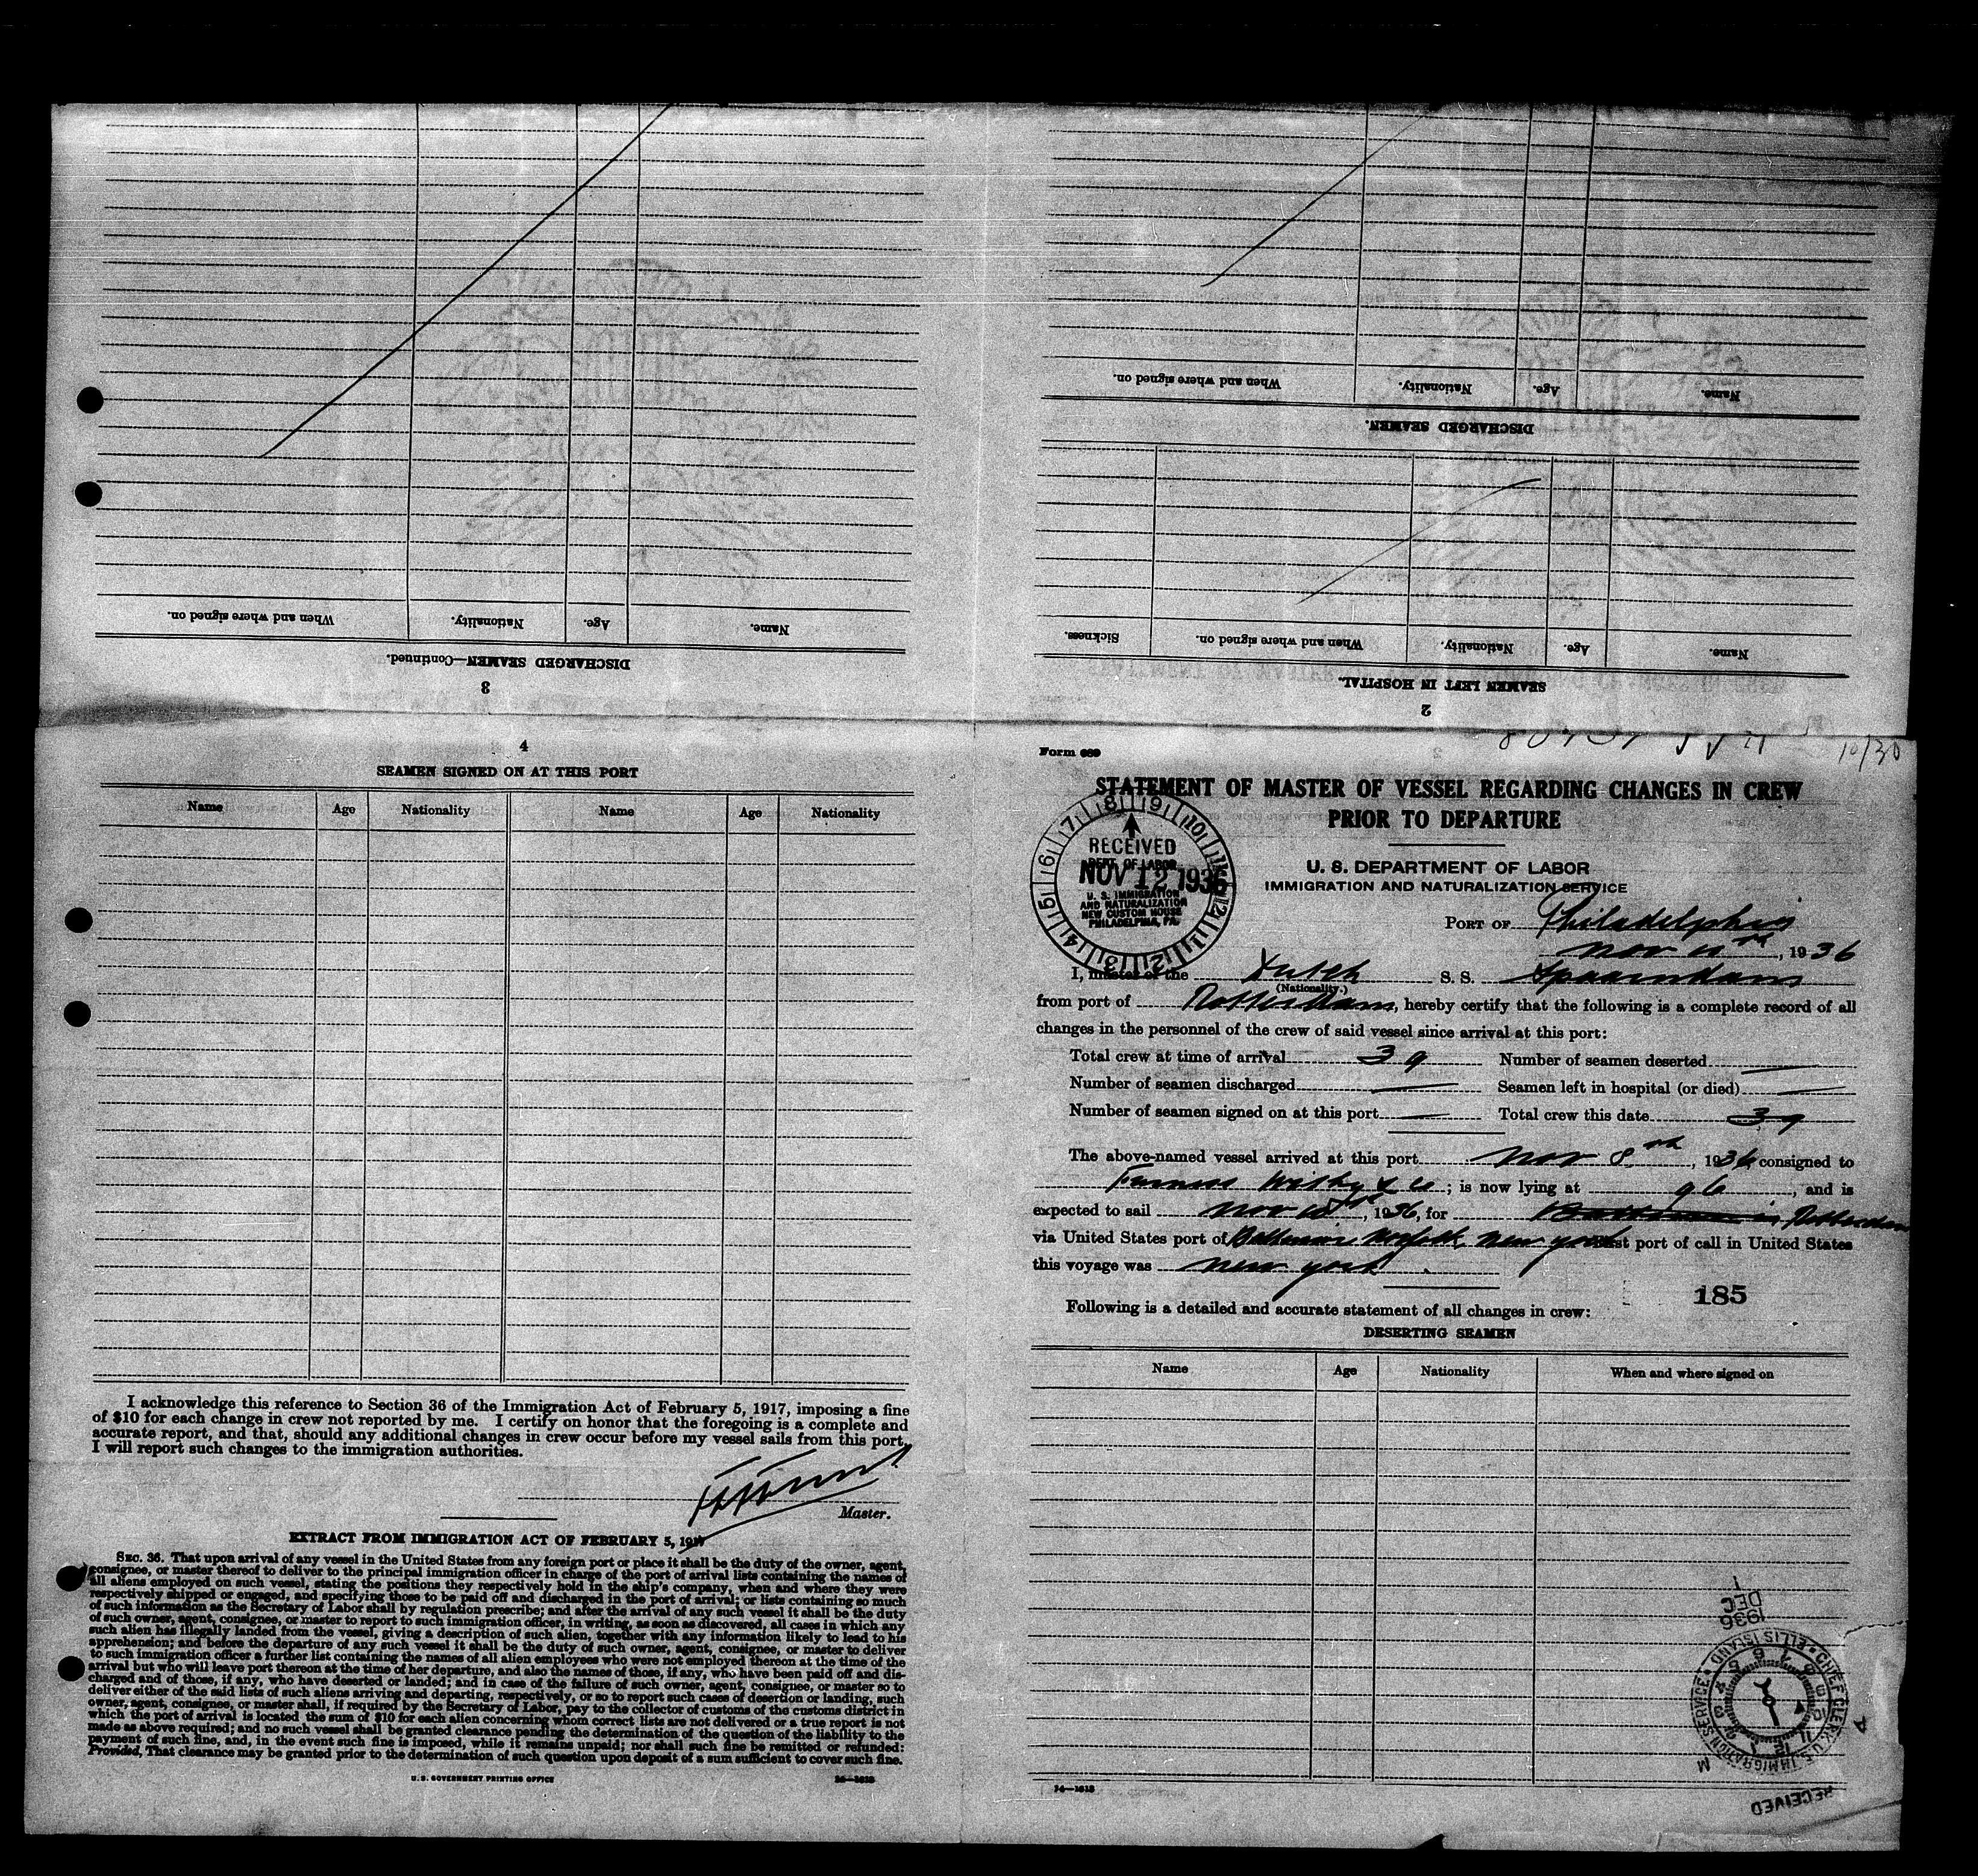 When and where signed on.
Nationality.
Age.
Name.
DISCHARGED SEAMEN—Continued.
3
When and where signed on.
Nationality.
Age.
Name.
DISCHARGED SEAMEN.
Sickness.
When and where signed on.
Nationality.
Age.
Name.
SEAMEN LEFT IN HOSPITAL.
2
4
SEAMEN SIGNED ON AT THIS PORT
Name Age Nationality Name Age Nationality
I acknowledge this reference to Section 36 of the Immigration Act of February 5, 1917, imposing a fine
of $10 for each change in crew not reported by me. I certify on honor that the foregoing is a complete and
accurate report, and that, should any additional changes in crew occur before my vessel sails from this port,
I will report such changes to the immigration authorities.
Master.
EXTRACT FROM IMMIGRATION ACT OF FEBRUARY 5, 1917
SEC. 36. That upon arrival of any vessel in the United States from any foreign port or place it shall be the duty of the owner, agent,
consignee, or master thereof to deliver to the principal immigration officer in charge of the port of arrival lists containing the names of
all aliens employed on such vessel, stating the positions they respectively hold in the ship's company, when and where they were
respectively shipped or engaged, and specifying those to be paid off and discharged in the port of arrival; or lists containing so much
of such information as the Secretary of Labor shall by regulation prescribe; and after the arrival of any such vessel it shall be the duty
of such owner, agent, consignee, or master to report to such immigration officer, in writing, as soon as discovered, all cases in which any
such alien has illegally landed from the vessel, giving a description of such alien, together with any information likely to lead to his
apprehension; and before the departure of any such vessel it shall be the duty of such owner, agent, consignee, or master to deliver
to such immigration officer a further list containing the names of all alien employees who were not employed thereon at the time of the
arrival but who will leave port thereon at the time of her departure, and also the names of those, if any, who have been paid off and dis-
charged and of those, if any, who have deserted or landed; and in case of the failure of such owner, agent, consignee, or master so to
deliver either of the said lists of such aliens arriving and departing, respectively, or so to report such cases of desertion or landing, such
owner, agent, consignee, or master shall, if required by the Secretary of Labor, pay to the collector of customs of the customs district in
which the port of arrival is located the sum of $10 for each alien concerning whom correct lists are not delivered or a true report is not
made as above required; and no such vessel shall be granted clearance pending the determination of the question of the liability to the
payment of such fine, and, in the event such fine is imposed, while it remains unpaid; nor shall such fine be remitted or refunded:
Provided, That clearance may be granted prior to the determination of such question upon deposit of a sum sufficient to cover such fine.
U.S. GOVERNMENT PRINTING OFFICE 14—1618
Form 689
10/30
STATEMENT OF MASTER OF VESSEL REGARDING CHANGES IN CREW
PRIOR TO DEPARTURE
RECEIVED
DEPT. OF LABOR
NOV 12 1936
U. S. IMMIGRATION
AND NATURALIZATION
NEW CUSTOM HOUSE
PHILADELPHIA, PA.
U. S. DEPARTMENT OF LABOR
IMMIGRATION AND NATURALIZATION SERVICE
PORT OF Philadelphia
Nov 10th, 1936
I, master of the Dutch S. S. Spaarndam
(Nationality.)
from port of Rotterdam, hereby certify that the following is a complete record of all
changes in the personnel of the crew of said vessel since arrival at this port:
Total crew at time of arrival 39 Number of seamen deserted
Number of seamen discharged Seamen left in hospital (or died)
Number of seamen signed on at this port Total crew this date 39
The above-named vessel arrived at this port Nov 8th, 1936 consigned to
Furness Withy & Co; is now lying at 96, and is
expected to sail Nov 10th, 1936, for Rotterdam
via United States port of Baltimore Norfolk, New York Last port of call in United States
this voyage was New York
185
Following is a detailed and accurate statement of all changes in crew:
DESERTING SEAMEN
Name Age Nationality When and where signed on
14—1618
1936
DEC
1
CHIEF CLERK U.S. IMMIGRATION SERVICE • ELLIS ISLAND
M
RECEIVED